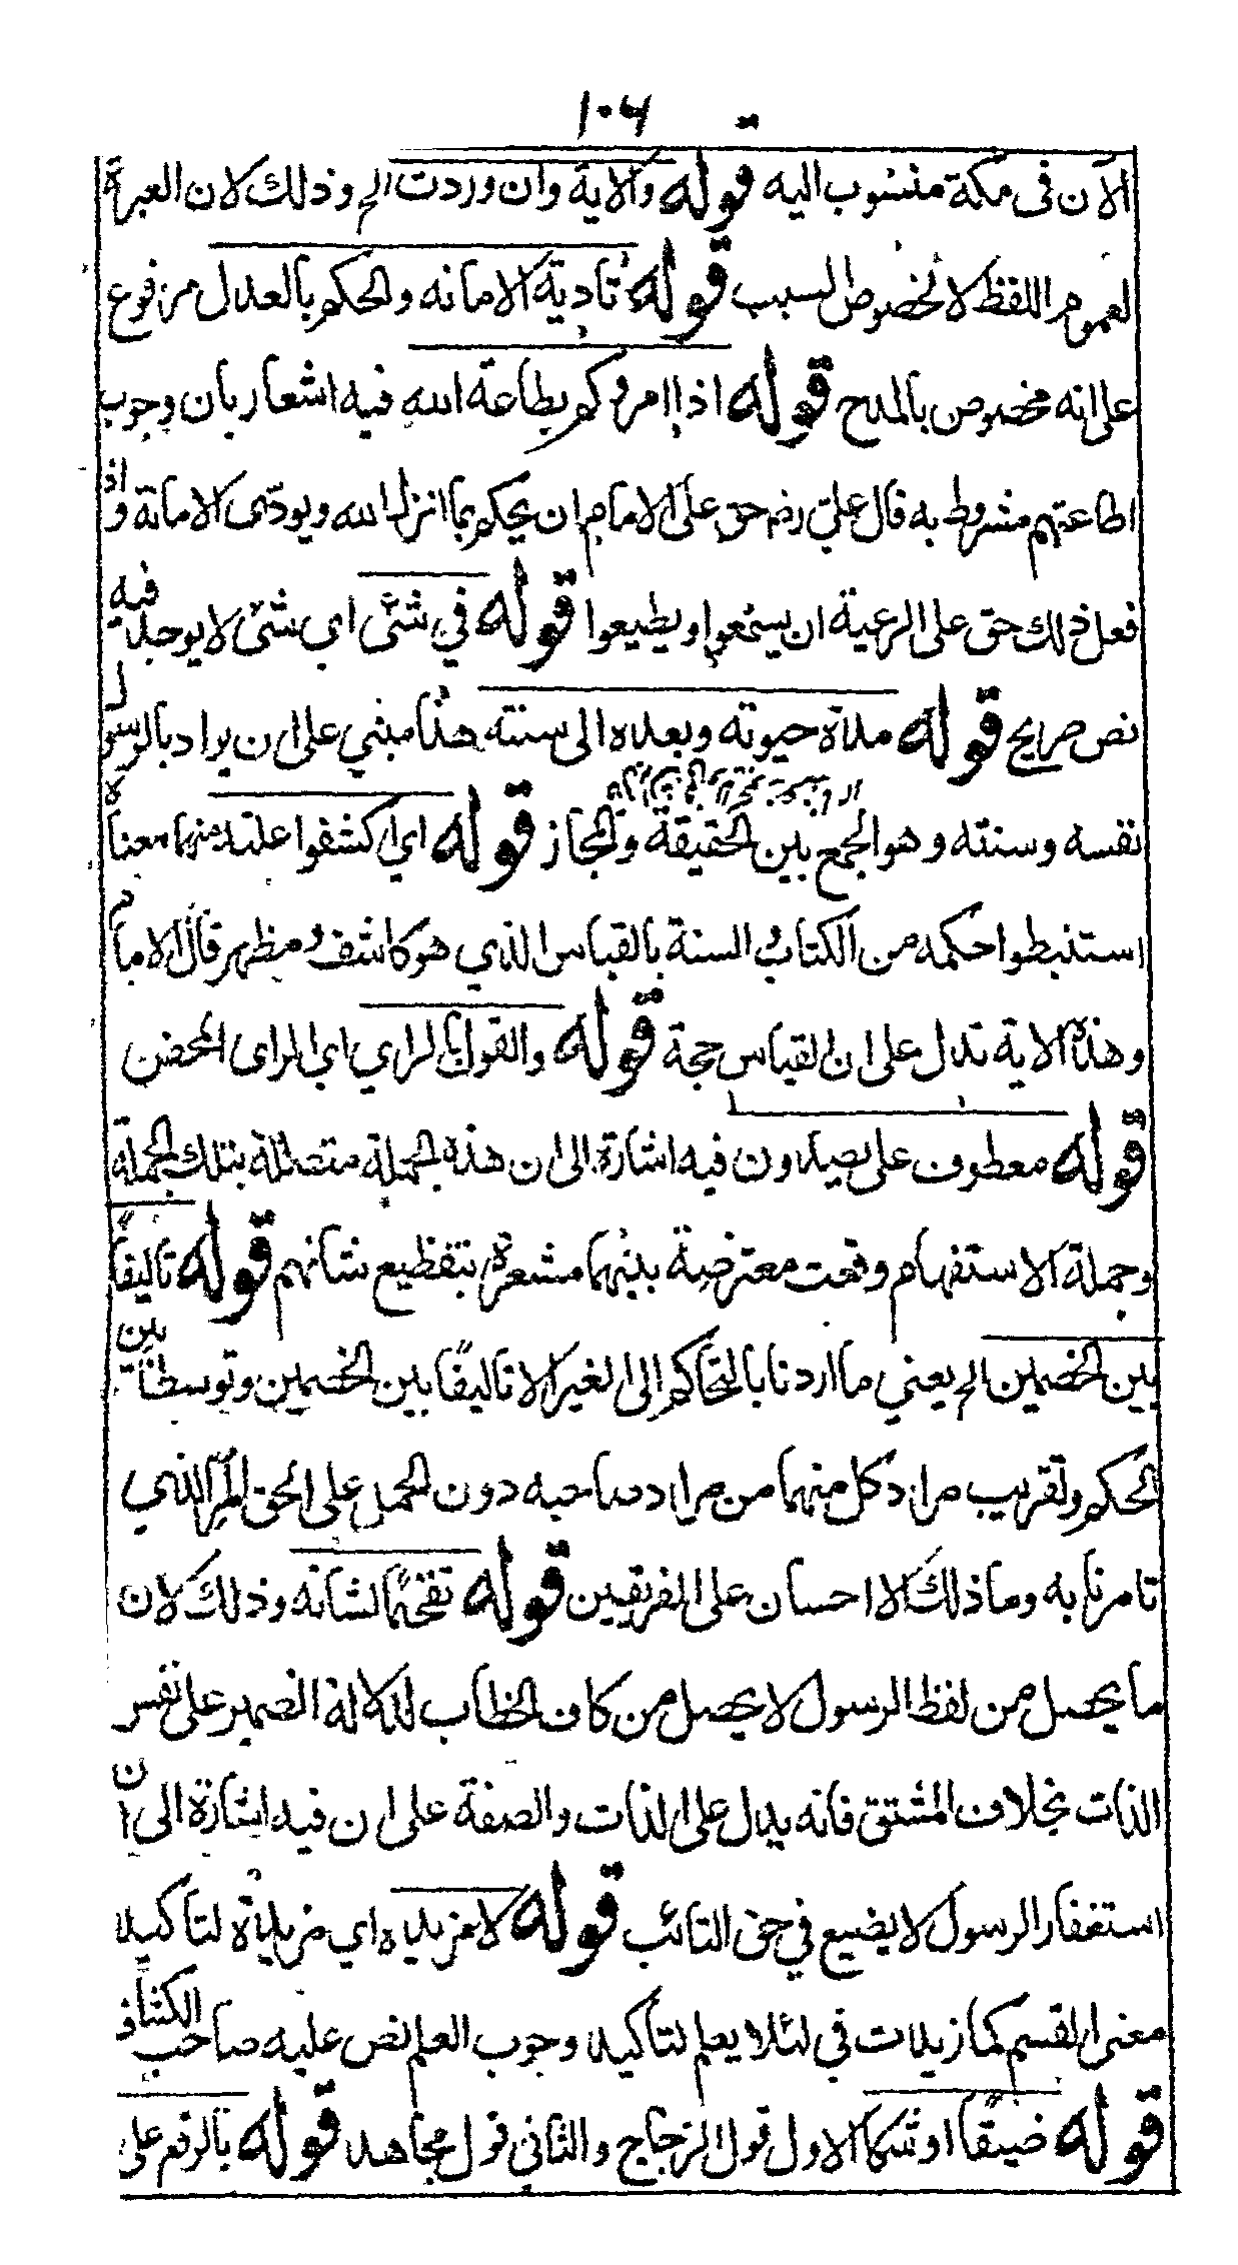 ١٠٦
الآن فى مكة منسوب اليه قوله والاية وان وردت الخ وذلك لان العبرة
لعموم اللفظ لا لخصوص السبب قوله تادية الامانه والحكم بالعدل مرفوع
على انه مخصوص بالمدح قوله اذا امروكم بطاعة الله فيه اشعار بان وجوب
اطاعتهم مشروط به قال علىّ رضـ حق على الامام ان يحكم بما انزل الله ويودّى الامانة واذا
فعل ذلك حق على الرعية ان يسمعوا ويطيعوا قوله في شئى اى شئى لا يوجد فيه
نص صريح قوله مدة حيوته وبعده الى سنته هذا مبني على ان يراد بالرسول
نفسه وسنته وهو الجمع بين الحقيقة والمجاز قوله اي كشفوا عليه منهما معناه
استنبطوا حكمه من الكتاب والسنة بالقياس الذي هو كاشف ومظهر قال الامام
وهذه الاية تدل على ان القياس حجة قوله والقول بالراي اى الراى المحض
قوله معطوف على يصدون فيه اشارة الى ان هذه الجملة متصلة بتلك الجملة
وجملة الاستفهام وقعت معترضة بينهما مشعرة بتفظيع شانهم قوله تاليفًا
بين الخصمين الخ يعني ما اردنا بالتحاكم الى الغير الا تاليفًا بين الخصمين وتوسطًا بين
الحكم وتقريب مراد كل منهما من مراد صاحبه دون الحمل على الحق المرّ الذي
تامرنا به وما ذلك الا احسان على الفريقين قوله تفخيمًا لشانه وذلك لان
ما يحصل من لفظ الرسول لا يحصل من كاف الخطاب لدلالة الضمير على نفس
الذات بخلاف المشتق فانه يدل على الذات والصفة على ان فيه اشارة الى ان
استغفار الرسول لا يضيع في حق التائب قوله لا مزيدة اي مزيدة لتاكيد
معنى القسم كما زيدت في لئلا يعلم لتاكيد وجوب العلم نص عليه صاحب الكشاف
قوله ضيقًا او شكا الاول قول الزجاج والثاني قول مجاهد قوله بالرفع على